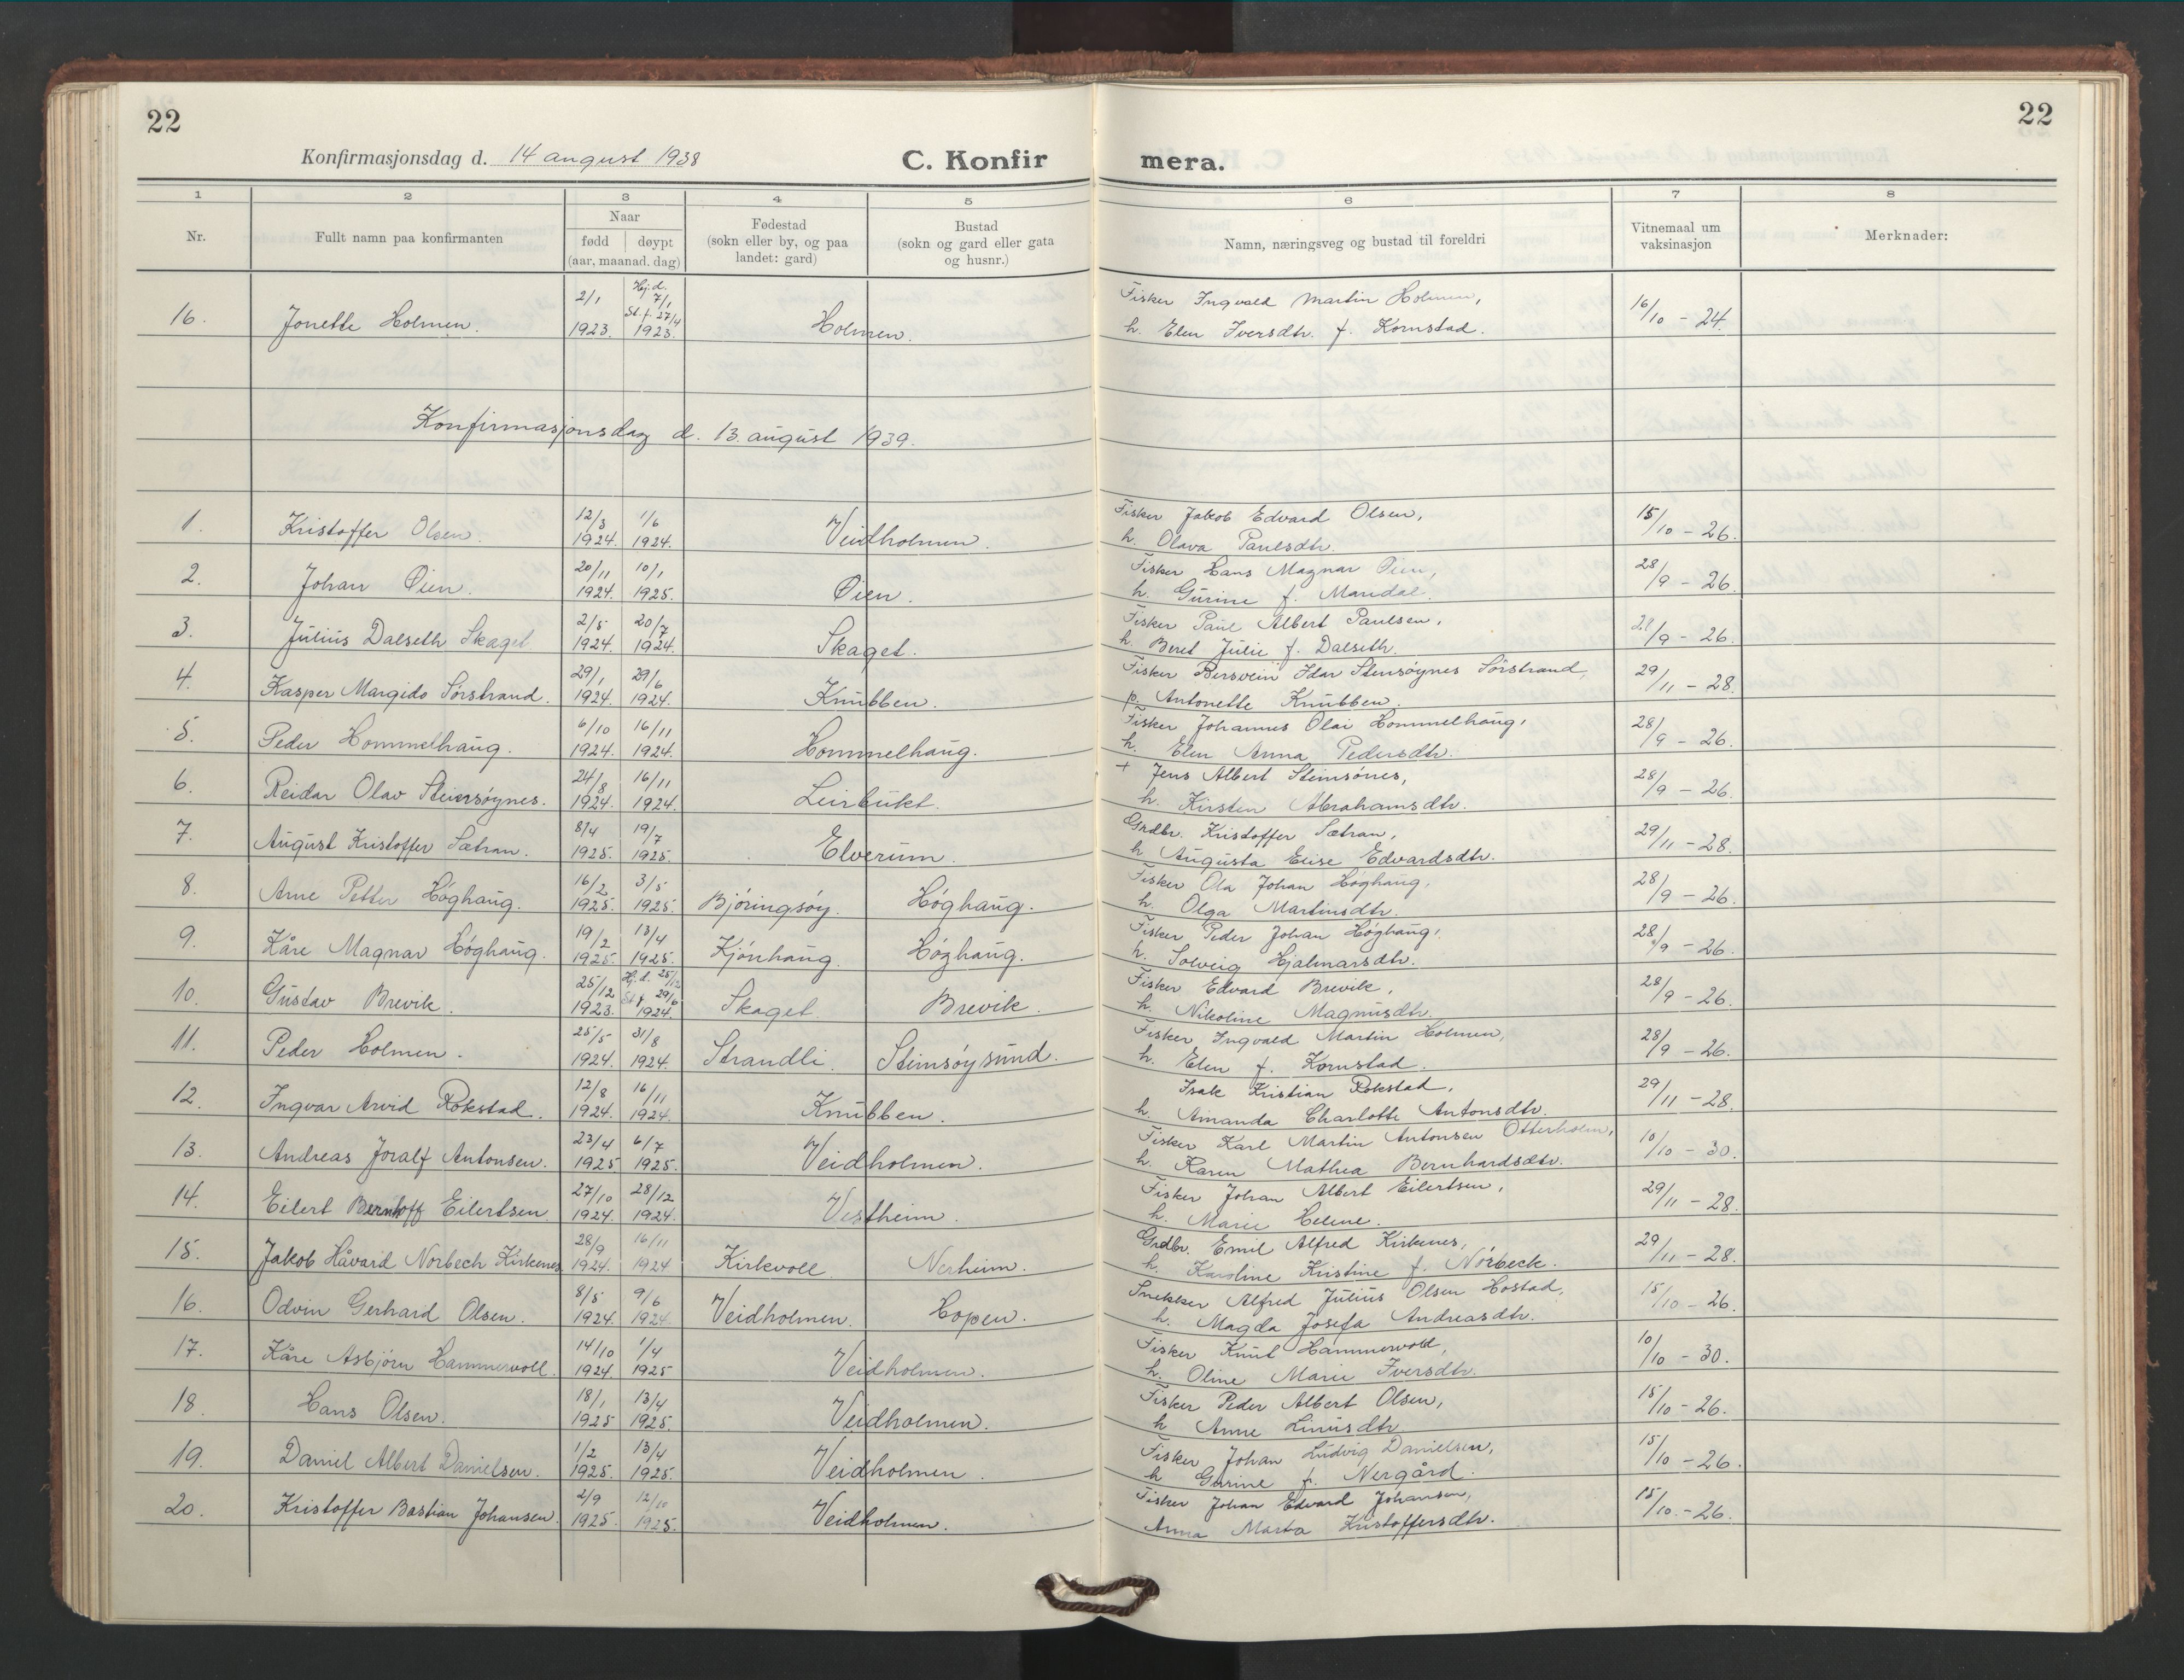 22
22
Konfirmasjonsdag d. 14 august 1938
C. Konfir mera.
1 2 3 4 5 6 7 8
Nr.
Fullt namn paa konfirmanten
Naar
fødd døypt
(aar, maanad, dag)
Fødestad
(sokn eller by, og paa
landet: gard)
Bustad
(sokn og gard eller gata
og husnr.)
Namn, næringsveg og bustad til foreldri
Vitnemaal um
vaksinasjon
Merknader:
16. Jonette Holmen. 2/1 1923. Hj.d. 7/1 St.f. 27/4 1923. Holmen. Fisker Ingvald Martin Holmen, 16/10 - 24.
h. Elen Iversdtr. f. Kornstad.
Konfirmasjonsdag d. 13. august 1939.
1. Kristoffer Olsen. 12/3 1924. 1/6 1924. Veidholmen. Fisker Jakob Edvard Olsen, 15/10 - 26.
h. Olava Paulsdtr.
2. Johan Øien. 20/11 1924. 10/1 1925. Øien. Fisker Hans Magnar Øien, 28/9 - 26.
h. Gurine f. Mandal.
3. Julius Dalseth Skaget 2/5 1924. 20/7 1924. Skaget. Fisker Paul Albert Paulsen, 28/9 - 26.
h. Beret Julie f. Dalseth.
4. Kasper Margido Sørstrand. 29/1 1924. 29/6 1924. Knubben. Fisker Bersvein Idar Stensøynes Sørstrand, 29/11 - 28.
p. Antonette Knubben.
5. Peder Hommelhaug. 6/10 1924. 16/11 1924. Hommelhaug. Fisker Johannes Olai Hommelhaug, 28/9 - 26.
h. Elen Anna Pedersdtr.
6. Reidar Olav Steinsøynes. 24/8 1924. 16/11 1924. Leirbukt. + Jens Albert Steinsønes, 28/9 - 26.
h. Kirsten Abrahamsdtr.
7. August Kristoffer Sætran. 8/4 1925. 19/7 1925. Elverum. Grdbr. Kristoffer Sætran, 29/11 - 28.
h. Augusta Elise Edvardsdtr.
8. Arne Petter Høghaug. 16/2 1925. 3/5 1925. Bjøringsøy. Høghaug. Fisker Ola Johan Høghaug, 28/9 - 26.
h. Olga Martinsdtr.
9. Kåre Magnar Høghaug. 19/2 1925. 13/4 1925. Kjønhaug. Høghaug. Fisker Peder Johan Høghaug, 28/9 - 26.
h. Solveig Hjalmarsdtr.
10. Gustav Brevik. 25/12 1923. Hj.d. 25/12 St.f. 29/6 1924. Skaget. Brevik. Fisker Edvard Brevik, 28/9 - 26.
h. Nikoline Magnusdtr.
11. Peder Holmen. 25/5 1924. 31/8 1924. Strandli. Steinsøysund. Fisker Ingvald Martin Holmen, 28/9 - 26.
h. Elen f. Kornstad.
12. Ingvar Arvid Rokstad. 12/8 1924. 16/11 1924. Knubben. Isak Kristian Rokstad, 29/11 - 28.
h. Amanda Charlotte Antonsdtr.
13. Andreas Joralf Antonsen. 23/4 1925 6/7 1925. Veidholmen. Fisker Karl Martin Antonsen Otterholm, 10/10 - 30.
h. Karen Mathea Bernhardsdtr.
14. Eilert Berntoff Eilertsen 27/10 1924. 28/12 1924. Vestheim. Fisker Johan Albert Eilertsen, 29/11 - 28.
h. Marie Helene.
15. Jakob Håvard Norbech Kirkenes 28/9 1924. 16/11 1924 Kirkvoll. Nerheim. Grdbr. Emil Alfred Kirkenes, 29/11 - 28.
h. Karoline Kristine f. Nørbeck.
16. Odvin Gerhard Olsen. 8/5 1924. 9/6 1924 Veidholmen. Hopen. Snekker Alfred Julius Olsen Hostad, 15/10 - 26.
h. Magda Josefa Andreasdtr.
17. Kåre Asbjørn Hammervoll. 14/10 1924. 1/4 1925 Veidholmen. Fisker Knut Hammervold, 10/10 - 30.
h. Oline Marie Iversdtr.
18. Hans Olsen. 18/1 1925 13/4 1925. Veidholmen. Fisker Peder Albert Olsen, 15/10 - 26.
h Anne Linusdtr.
19. Daniel Albert Danielsen. 1/2 1925. 13/4 1925. Veidholmen. Fisker Johan Ludvig Danielsen, 15/10 - 26.
h Gurine f. Nergård.
20. Kristoffer Bastian Johansen. 2/9 1925. 12/10 1925. Veidholmen. Fisker Johan Edvard Johansen, 15/10 - 26.
Anna Marta Kristoffersdtr.